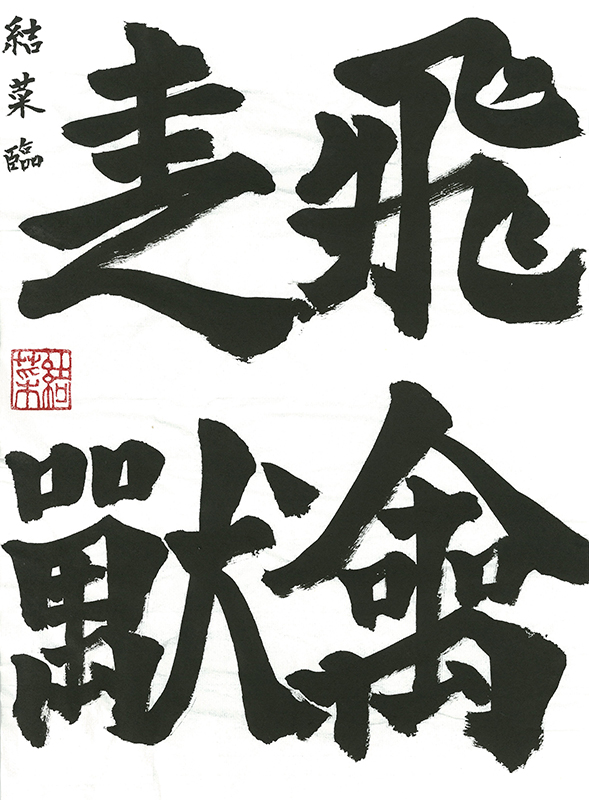 飛禽
走獸
結菜臨
結菜